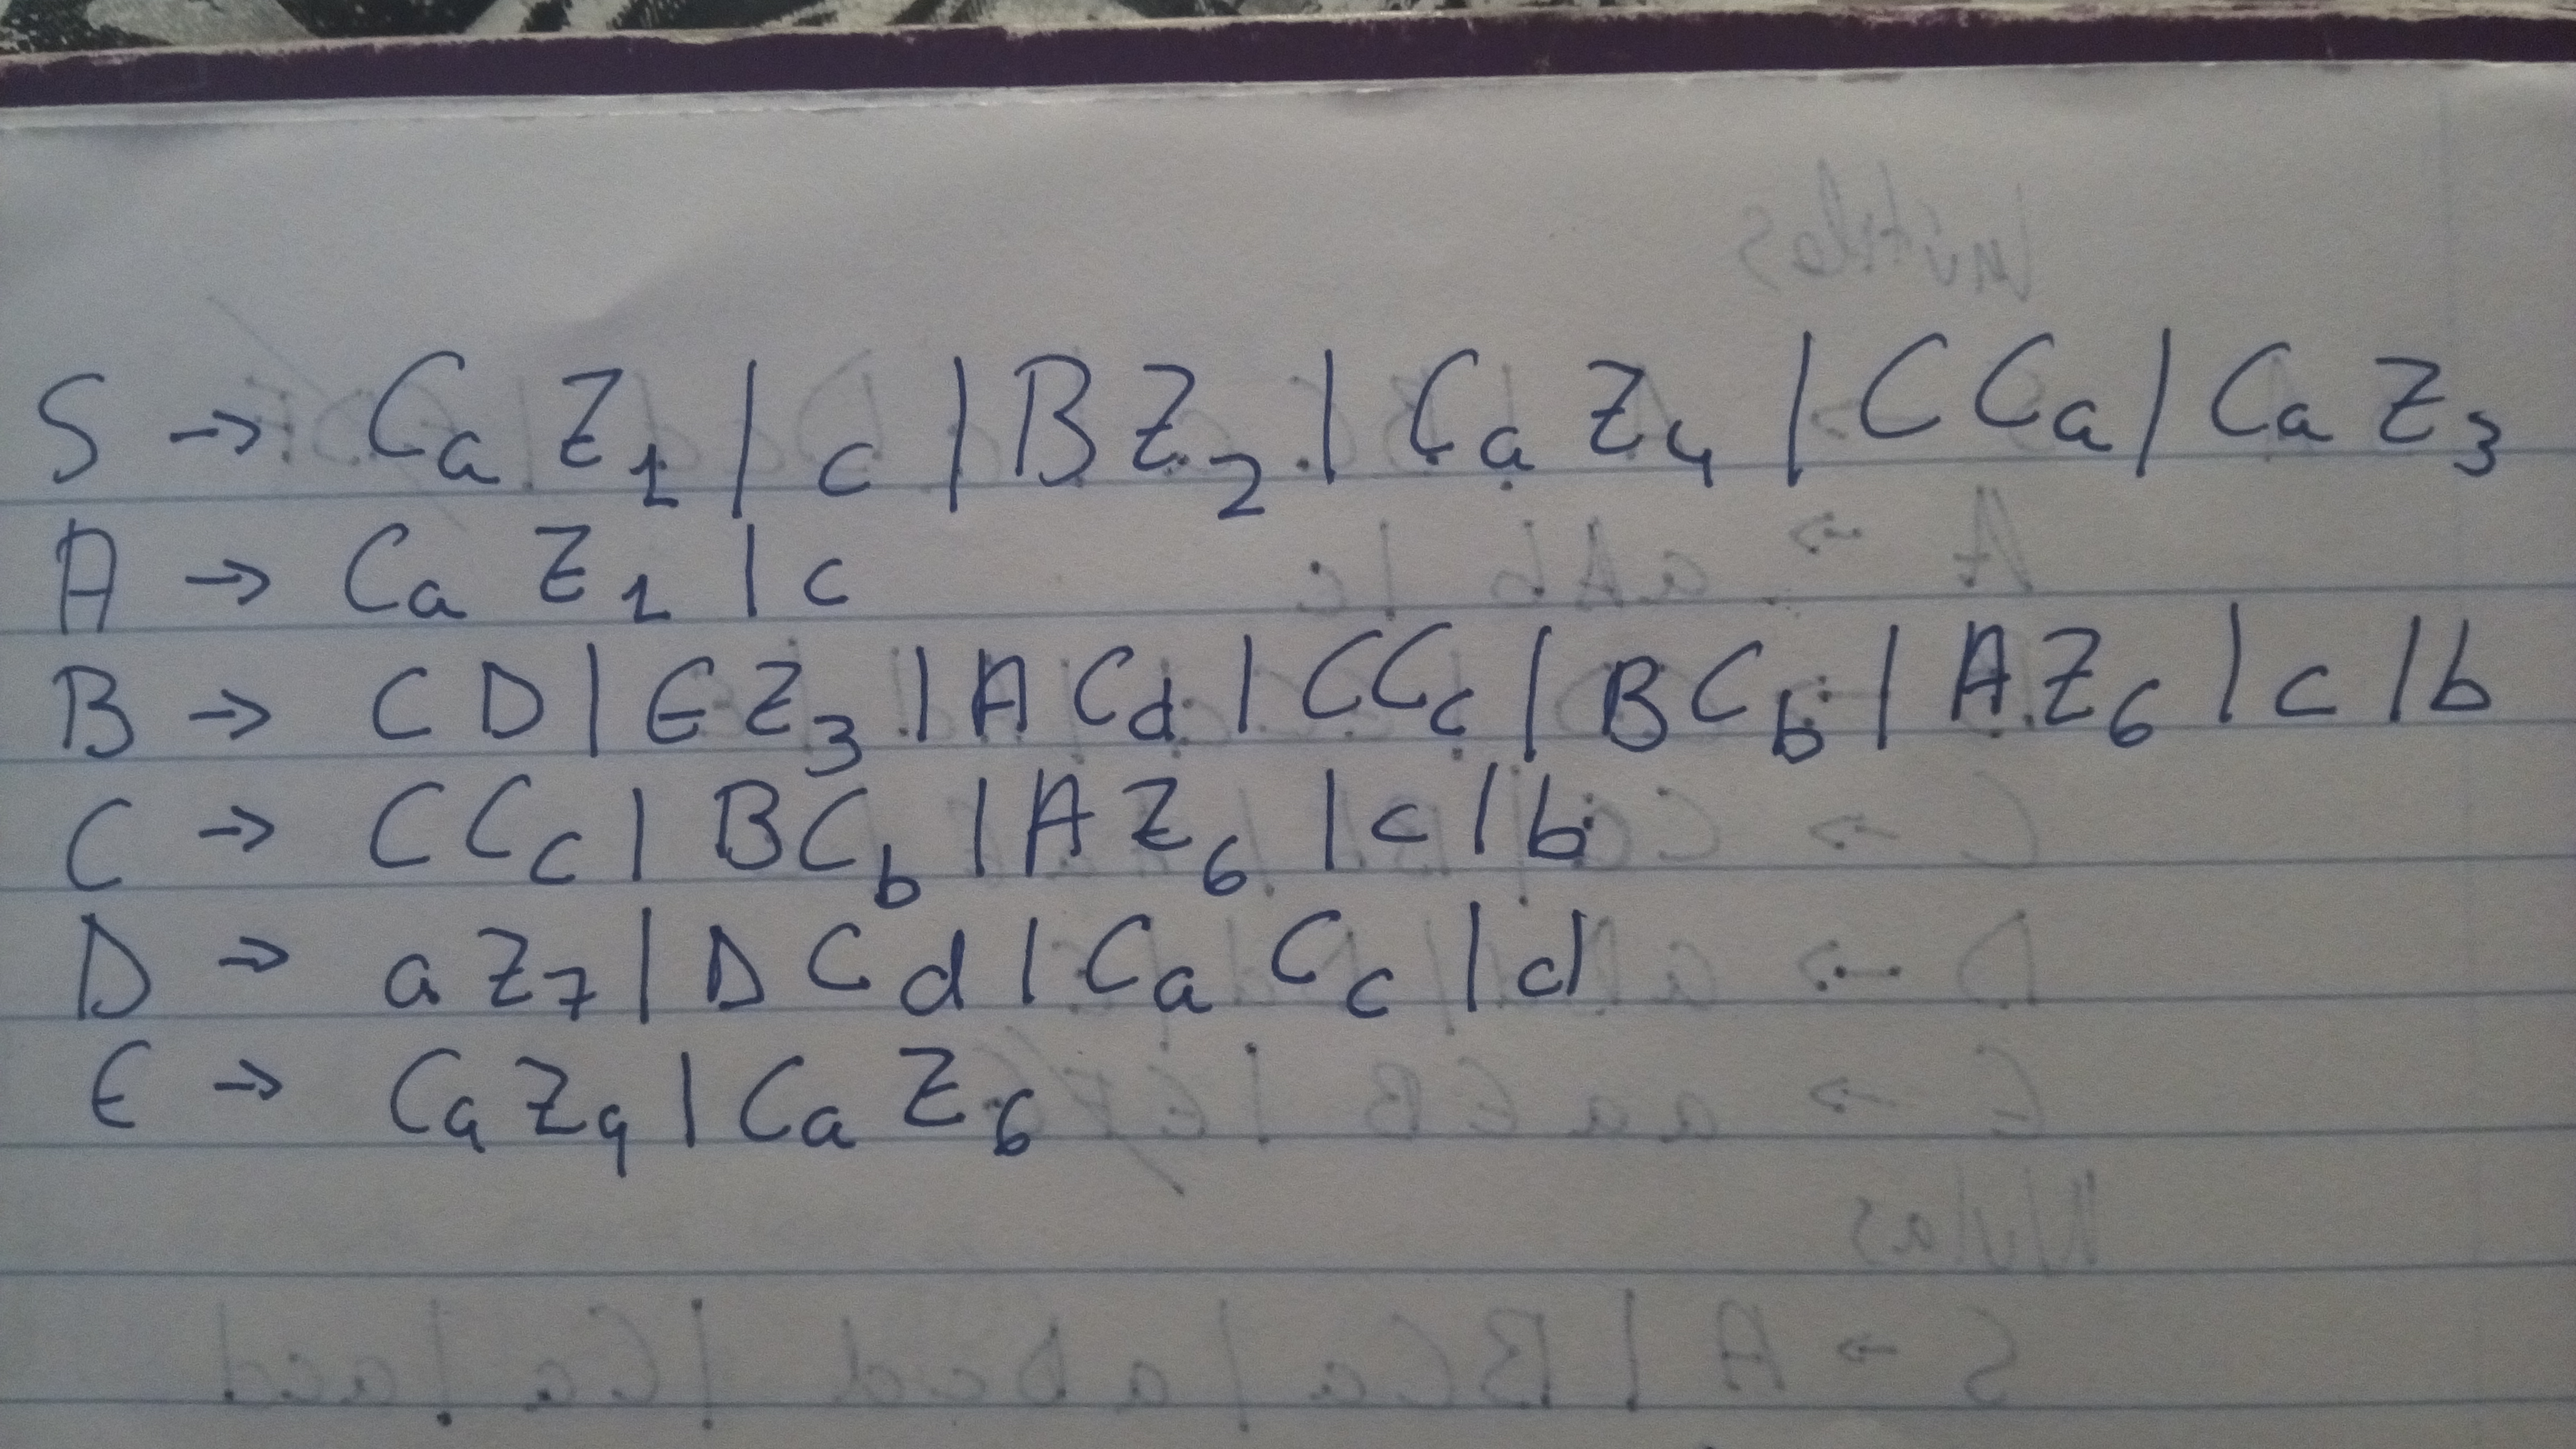 S → Ca Z1 | c | B Z2 | Ca Z4 | C Ca | Ca Z3
A → Ca Z1 | c
B → C D | E Z3 | A Cd | C Cc | B Cb | A Z6 | c | b
C → C Cc | B Cb | A Z6 | c | b
D → a Z7 | D Cd | Ca Cc | d
E → Ca Z9 | Ca Z6